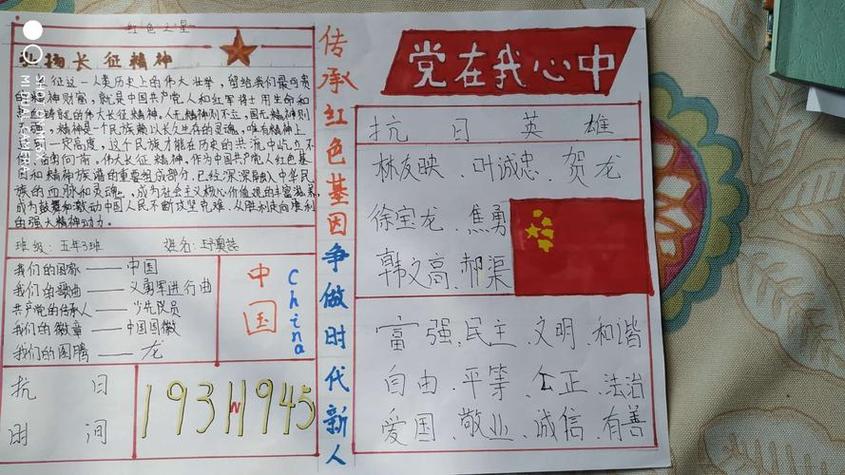 红色之星
弘扬长征精神
长征这一人类历史上的伟大壮举，留给我们最可贵
的精神财富，就是中国共产党人和红军将士用生命和
热血铸就的伟大长征精神。人无精神则不立，国无精神则
不强。精神是一个民族赖以长久生存的灵魂，唯有精神上
一定高度，这个民族才能在历史的洪流中屹立不
奋勇向前。伟大长征精神，作为中国共产党人红色基
因和精神族谱的重要组成部分，已经深深融入中华民
族的血脉和灵魂，成为社会主义核心价值观的丰富滋养，
成为鼓舞和激动中国人民不断攻坚克难，从胜利走向胜利
的强大精神动力。
班级：五年3班 姓名：
我们的国家——中国
我们的歌曲——义勇军进行曲
共产党的传承人——少先队员
我们的徽章——中国国徽
我们的图腾——龙
中国
China
抗日
时间
1931 1945
传承红色基因争做时代新人
党在我心中
抗日英雄
林友映、叶诚忠、贺龙
徐宝龙、焦勇
韩文高、郝渠
富强、民主、文明、和谐
自由、平等、公正、法治
爱国、敬业、诚信、有善